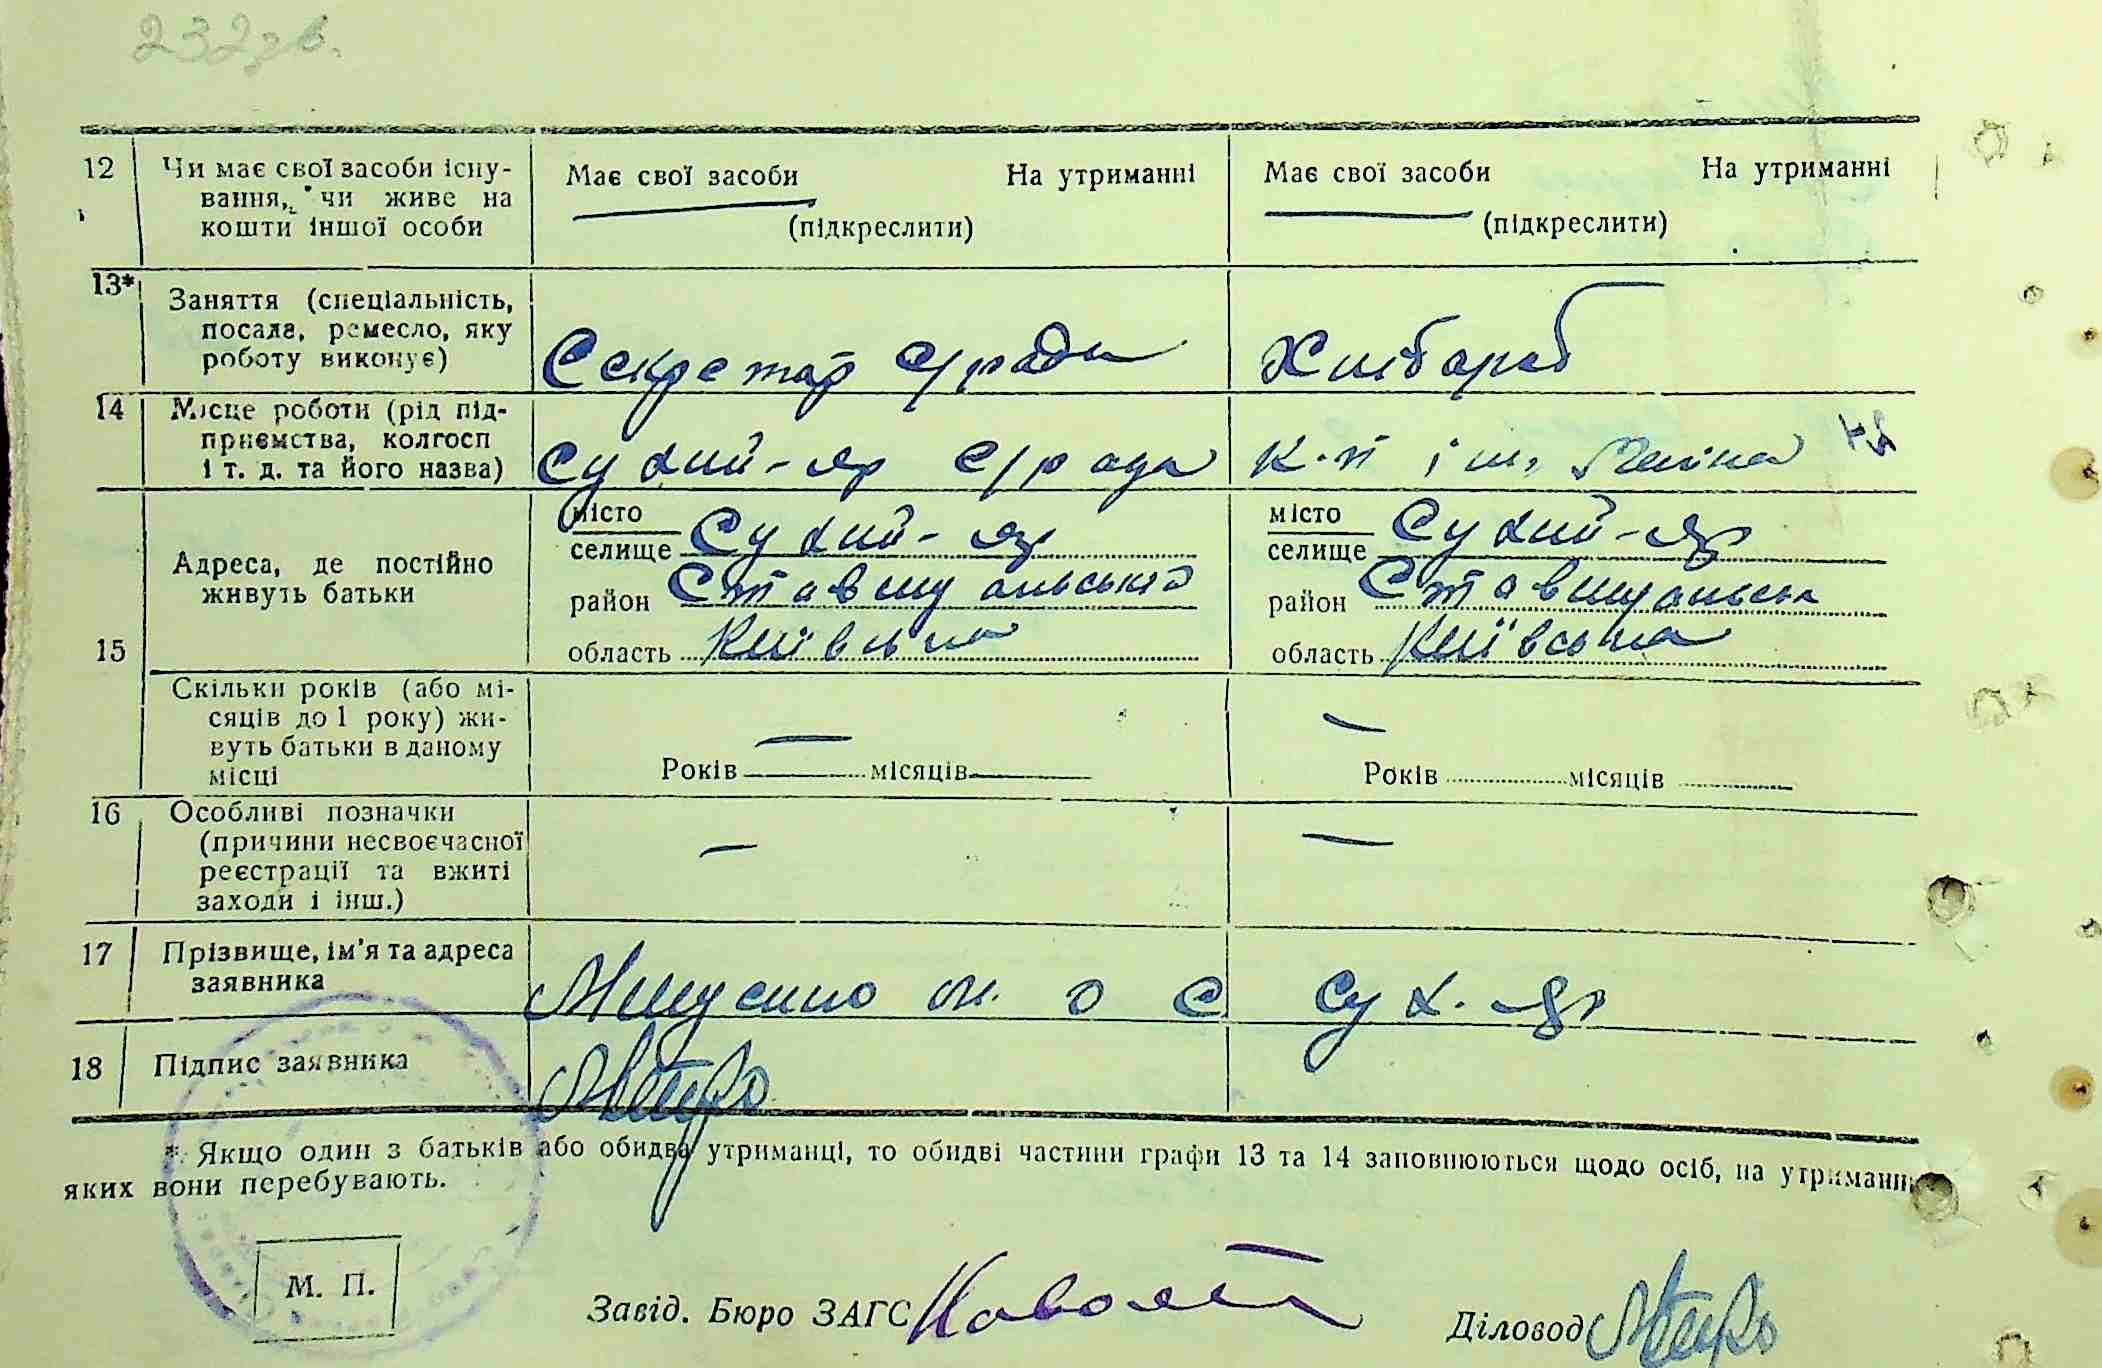 232зв.
12 Чи має свої засоби існу-
вання, чи живе на
кошти іншої особи
Має свої засоби На утриманні
(підкреслити)
Має свої засоби На утриманні
(підкреслити)
13* Заняття (спеціальність,
посада, ремесло, яку
роботу виконує)
Секретар с/ради
Хлібороб
14 Місце роботи (рід під-
приємства, колгосп
і т. д. та його назва)
Сухий-яр с/рада
к-п ім.
15 Адреса, де постійно
живуть батьки
місто
селище Сухий-яр
район Ставищанський
область Київська
місто
селище Сухий-яр
район Ставищанськ
область Київська
Скільки років (або мі-
сяців до 1 року) жи-
вуть батьки в даному
місці
—
Років місяців
—
Років місяців
16 Особливі позначки
(причини несвоєчасної
реєстрації та вжиті
заходи і інш.)
—
—
17 Прізвище, ім'я та адреса
заявника
с Сух. яр
18 Підпис заявника
* Якщо один з батьків або обидва утриманці, то обидві частини графи 13 та 14 заповнюються щодо осіб, на утриманні
яких вони перебувають.
М. П.
Завід. Бюро ЗАГС
Діловод